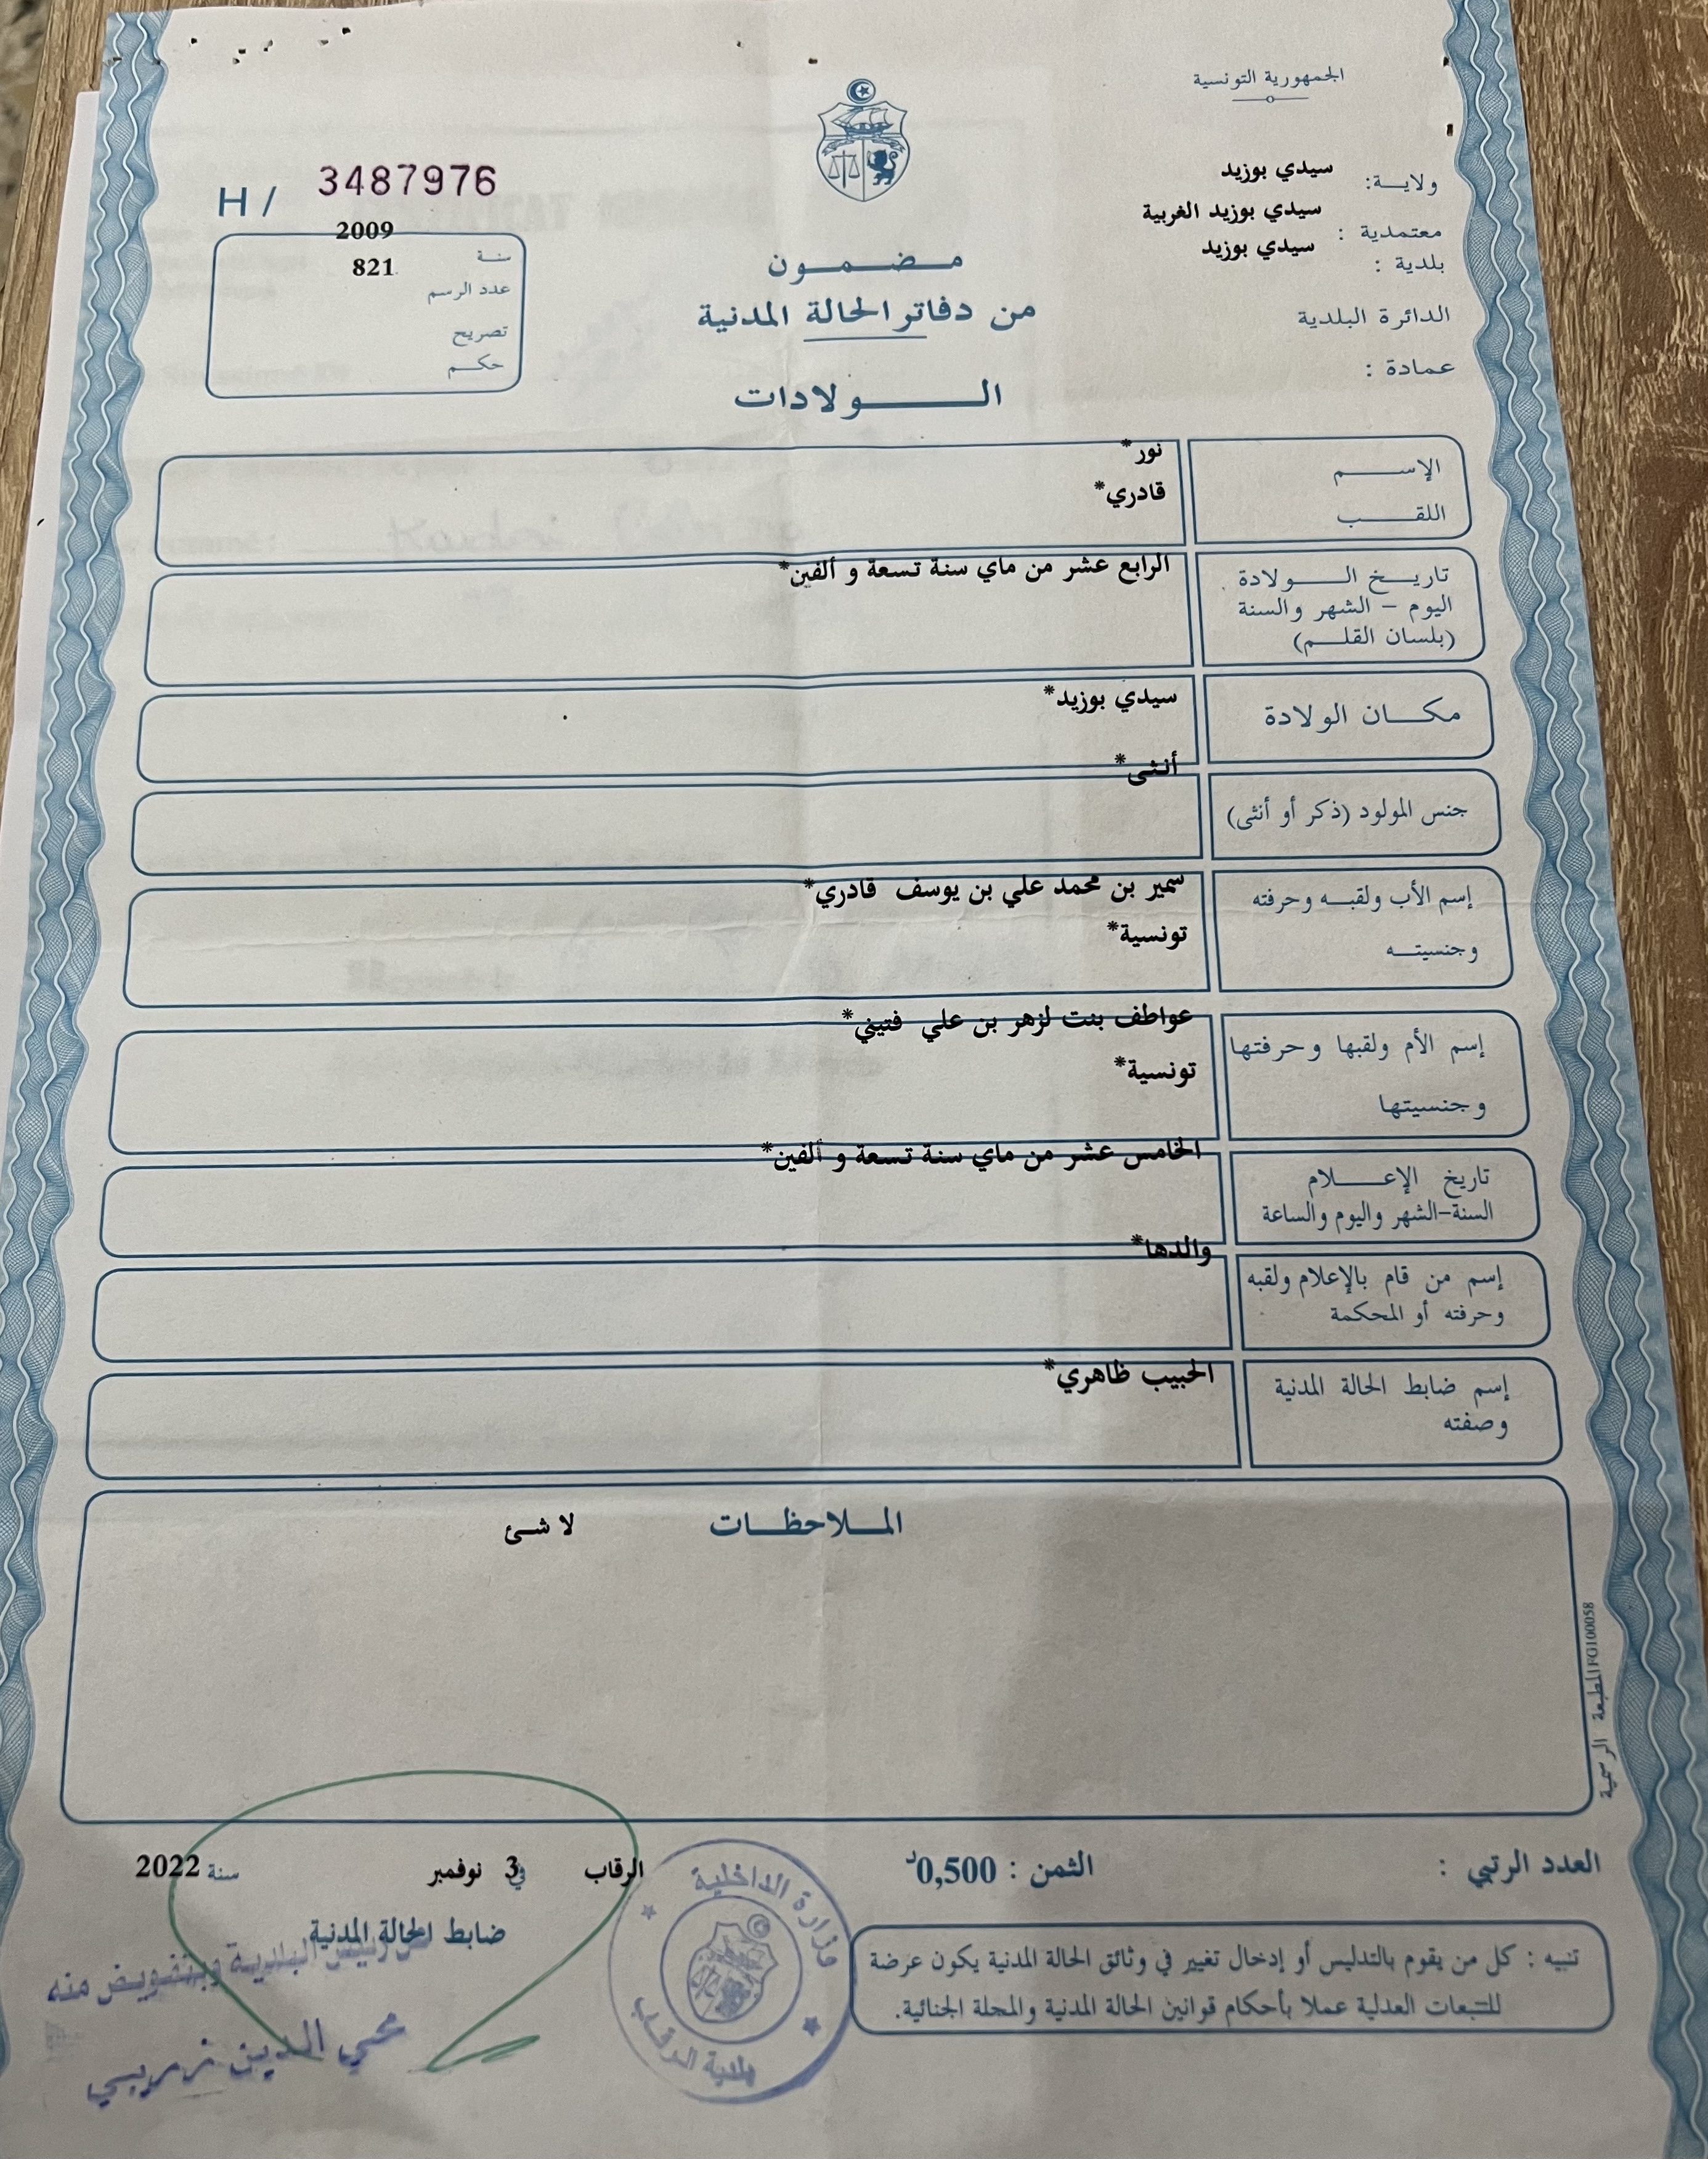 الجمهورية التونسية
ولايـــة: سيدي بوزيد
معتمدية : سيدي بوزيد الغربية
بلدية : سيدي بوزيد
الدائرة البلدية
عمادة :
H / 3487976
سنـة 2009
عدد الرسم 821
تصريح
حكـــم
مـــضـــمـــون
من دفاتر الحالة المدنية
الـــــولادات
الإســــــم نور*
اللقــــب قادري*
تاريـــخ الـــــولادة الرابع عشر من ماي سنة تسعة و ألفين*
اليوم – الشهر والسنة
(بلسان القلـــم)
مكـــان الولادة سيدي بوزيد*
جنس المولود (ذكر أو أنثى) أنثى*
إسم الأب ولقبـــه وحرفته سمير بن محمد علي بن يوسف قادري*
وجنسيتـــه تونسية*
إسم الأم ولقبها وحرفتها عواطف بنت لزهر بن علي فتيني*
وجنسيتها تونسية*
تاريخ الإعـــــلام الخامس عشر من ماي سنة تسعة و ألفين*
السنة-الشهر واليوم والساعة
إسم من قام بالإعلام ولقبه والدها*
وحرفته أو المحكمة
إسم ضابط الحالة المدنية الحبيب ظاهري*
وصفته
المـــلاحظـــات لا شئ
المطبعة الرسمية FG100058
العدد الرتبي :
الثمن : 0,500د
الرقاب في 3 نوفمبر سنة 2022
ضابط الحالة المدنية
رئيس البلدية وبتفويض منه
محي الدين زمريبي
وزارة الداخلية
بلدية الرقاب
تنبيه : كل من يقوم بالتدليس أو إدخال تغيير في وثائق الحالة المدنية يكون عرضة
للتتبعات العدلية عملا بأحكام قوانين الحالة المدنية والمجلة الجنائية.